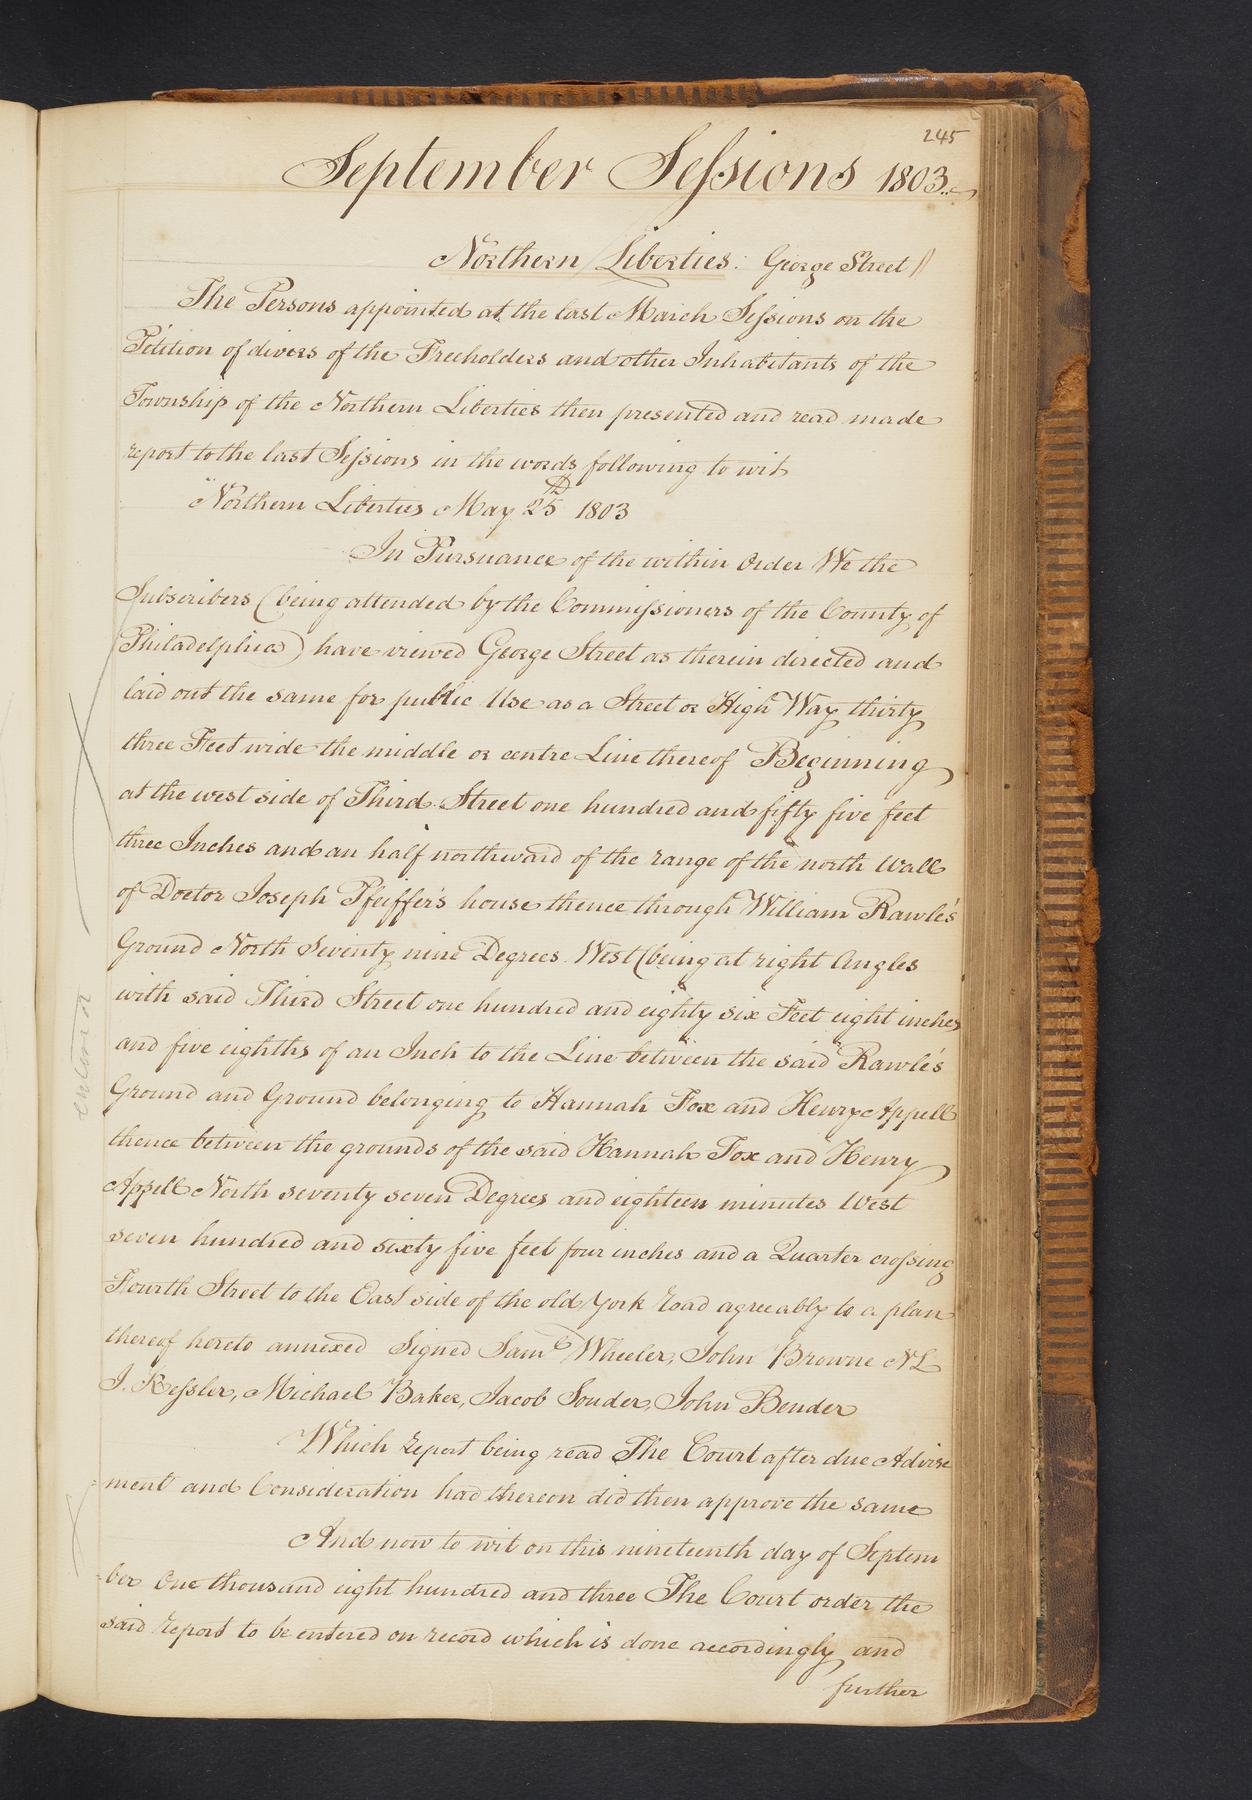 245
September Sessions 1803.
Northern Liberties: George Street //
The Persons appointed at the last March Sessions on the
Petition of divers of the Freeholders and other Inhabitants of the
Township of the Northern Liberties then presented and read made
report to the last Sessions in the words following to wit
"Northern Liberties May 25th 1803
In Pursuance of the within Order We the
Subscribers (being attended by the Commissioners of the County of
Philadelphia) have viewed George Street as therein directed and
laid out the same for public Use as a Street or High Way thirty
three Feet wide the middle or centre Line thereof Beginning
at the west side of Third Street one hundred and fifty five feet
three Inches and an half northward of the range of the north Wall
of Doctor Joseph Pfeiffer's house thence through William Rawle's
Ground North Seventy nine Degrees West (being at right Angles
with said Third Street one hundred and eighty six Feet eight inches
and five eighths of an Inch to the Line between the said Rawle's
Ground and Ground belonging to Hannah Fox and Henry Appell
thence between the grounds of the said Hannah Fox and Henry
Appell North seventy seven Degrees and eighteen minutes West
seven hundred and sixty five feet four inches and a Quarter crossing
Fourth Street to the East side of the old York road agreeably to a plan
thereof hereto annexed Signed Saml Wheeler, John Browne NL
J. Kessler, Michael Baker, Jacob Souder, John Bender
Which report being read The Court after due Advise
ment and Consideration had thereon did then approve the same
And now to wit on this nineteenth day of Septem
-ber One thousand eight hundred and three The Court order the
said report to be entered on record which is done accordingly and
further
entered